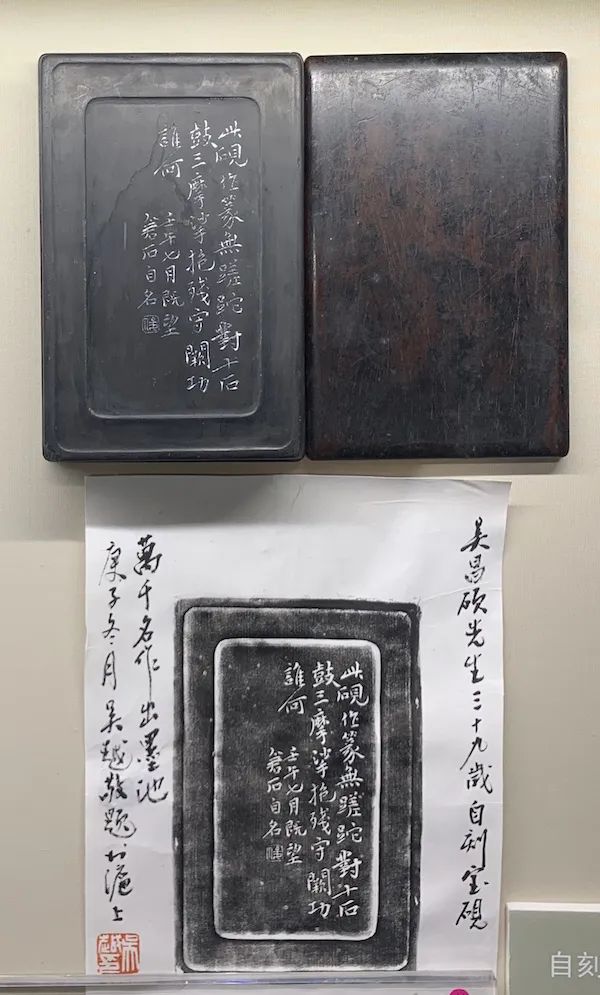 此硯作篆無蹉跎對十石
鼓三摩挲抱殘守闕功
誰何
壬午七月既望
蒼石自名
吴昌碩先生三十九歲自刻宝硯
此硯作篆無蹉跎對十石
鼓三摩挲抱殘守闕功
誰何
壬午七月既望
蒼石自名
萬千名作出墨池
庚子冬月吴越敬題於滬上
自刻